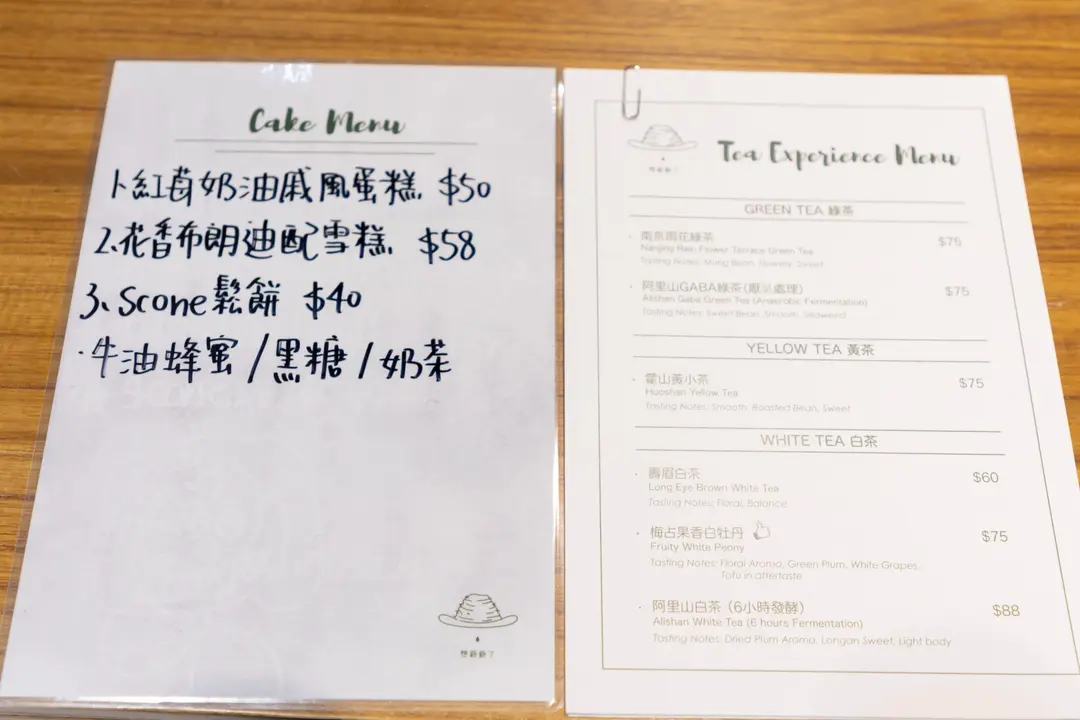 Cake Menu
1、紅莓奶油戚風蛋糕 $50
2、花香布朗迪配雪糕 $58
3、Scone鬆餅 $40
·牛油蜂蜜/黑糖/奶茶
Tea Experience Menu
GREEN TEA 綠茶
南京雨花綠茶 $75
Nanjing Rain Flower Terrace Green Tea
Tasting Notes: Mung Bean, Flowery, Sweet
阿里山GABA綠茶(厭氧處理) $75
Alishan Gaba Green Tea (Anaerobic Fermentation)
Tasting Notes: Sweet Bean, Smooth, Seaweed
YELLOW TEA 黃茶
霍山黃小茶 $75
Huoshan Yellow Tea
Tasting Notes: Smooth, Roasted Bean, Sweet
WHITE TEA 白茶
壽眉白茶 $60
Long Eye Brown White Tea
Tasting Notes: Floral, Balance
梅占果香白牡丹 $75
Fruity White Peony
Tasting Notes: Floral Aroma, Green Plum, White Grapes,
Tofu in aftertaste
阿里山白茶（6小時發酵） $88
Alishan White Tea (6 hours Fermentation)
Tasting Notes: Dried Plum Aroma, Longan Sweet, Light body